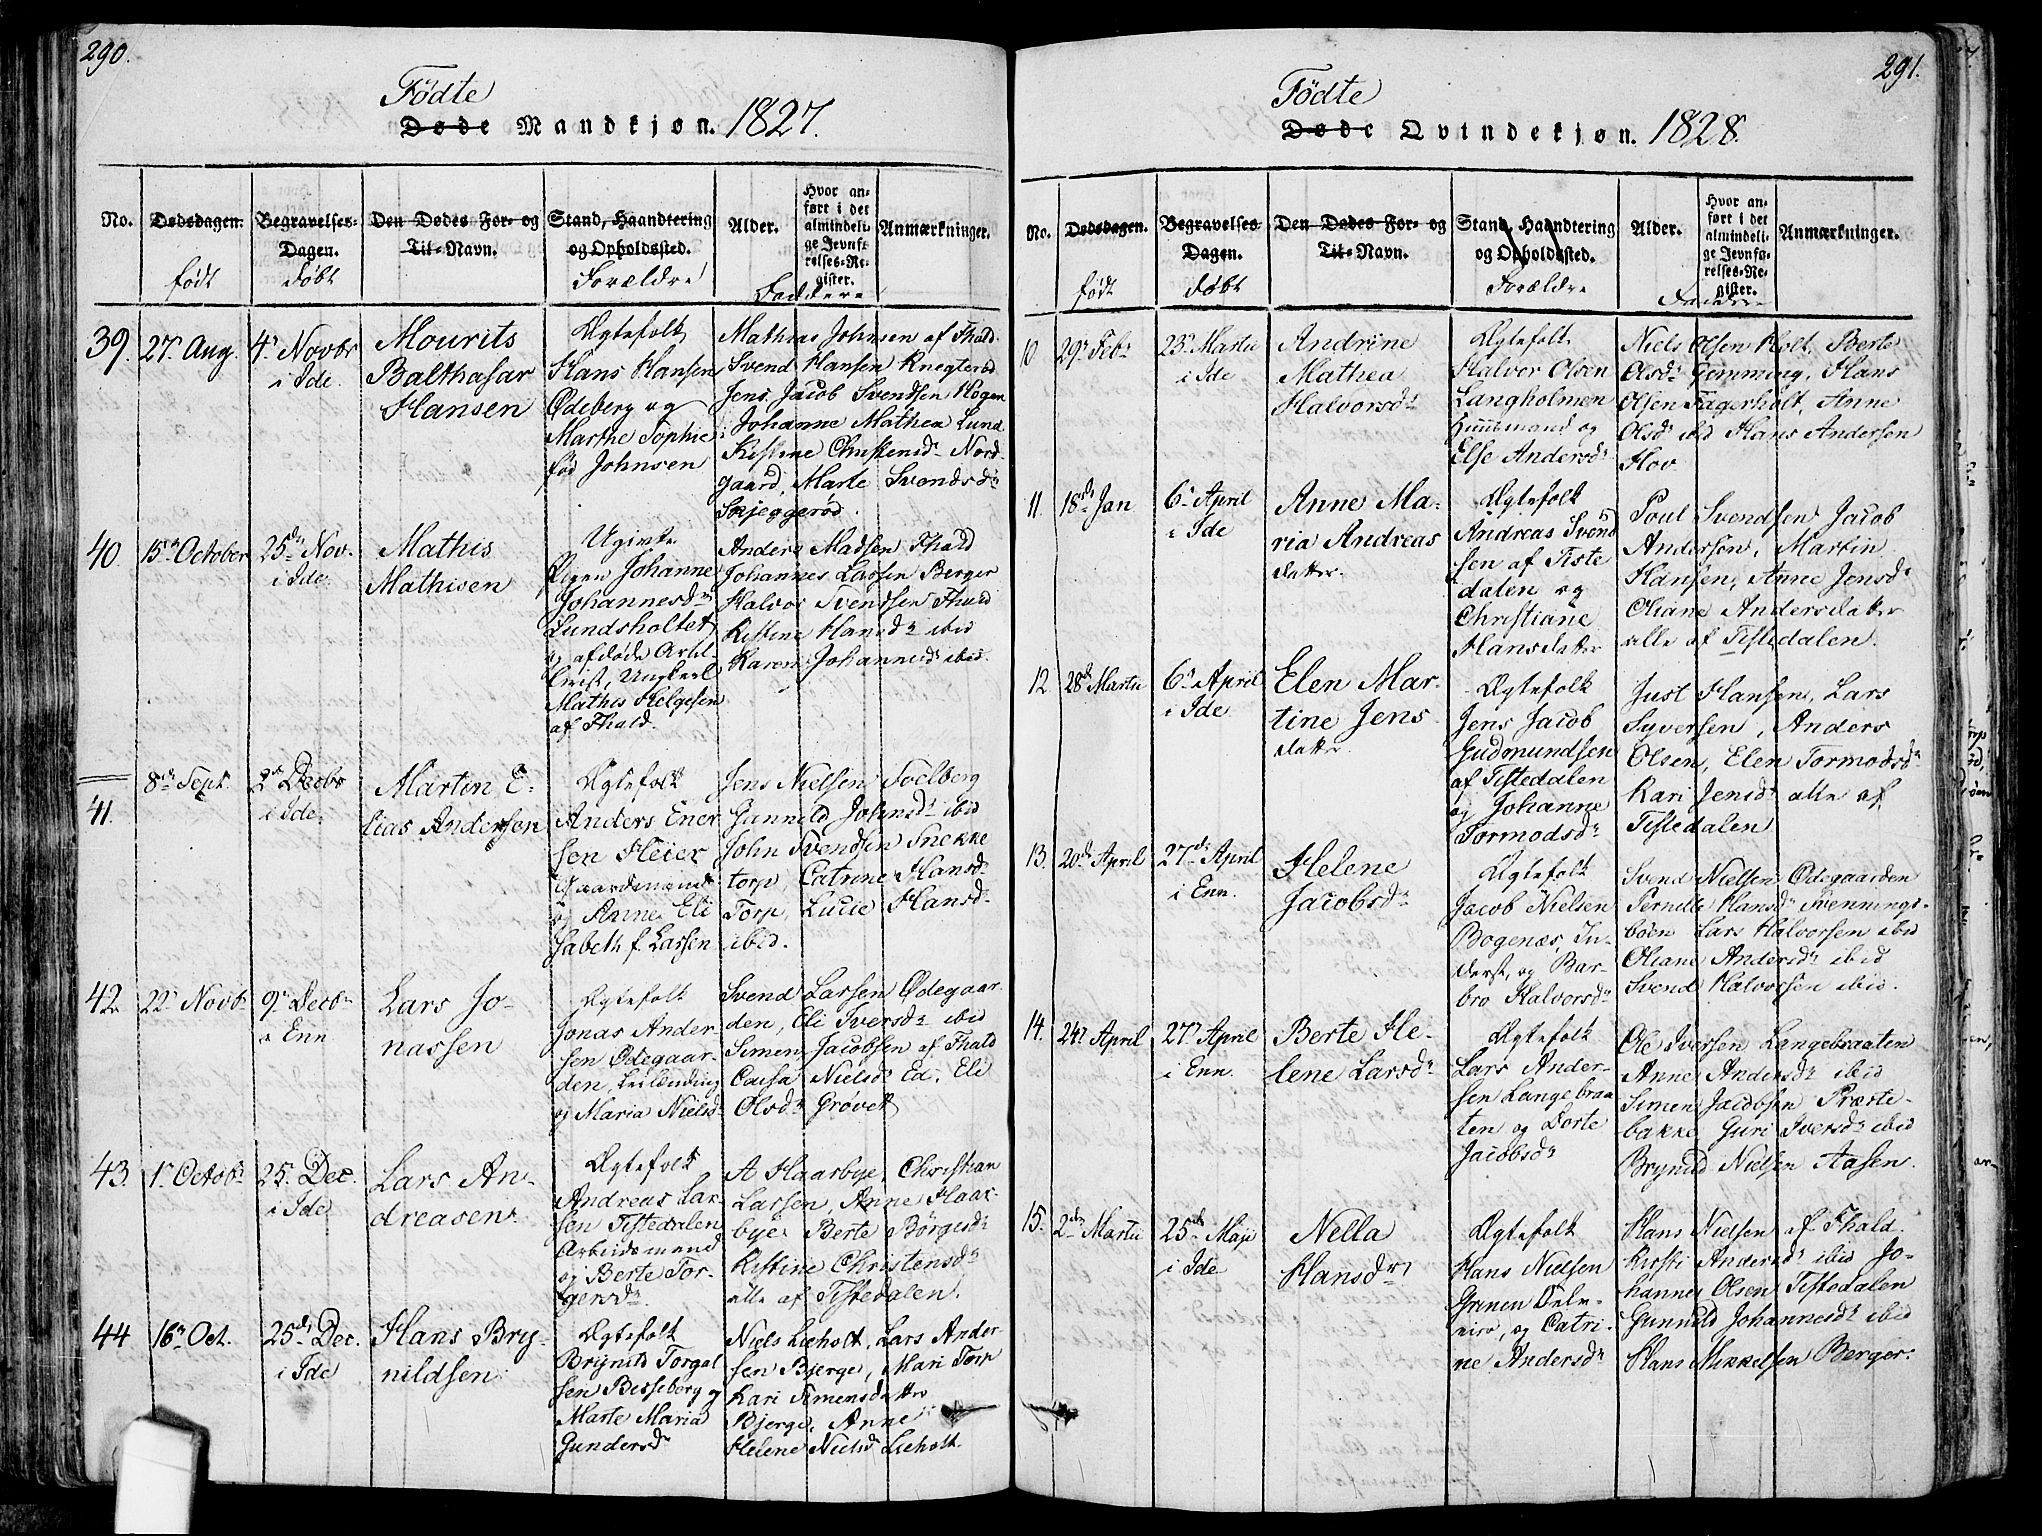 290.
Fødte
Døde Mandkjøn. 1827.
No.
Dødsdagen.
født
Begravelses-
Dagen.
døbt
Den Dødes For- og
Til-Navn.
Stand, Haandtering
og Opholdssted.
Forældre
Alder.
Hvor an-
ført i det
almindeli-
ge Jevnfø-
relses-Re-
gister.
Faddere
Anmærkninger.
39.
27. Aug.
4. Novbr
i Ide.
Mourits
Balthasar
Hansen
Ægtefolk
Hans Hansen
Ødeberg og
Marthe Sophie
fød Johnsen
Mathias Johnsen af Fhald
Svend Hansen Knegterød
Jens Jacob Svendsen Hogen
Johanne Mathea Lund
Kistine Christensd. Nord-
gaard, Marte Svendsd.
Skjeggerød.
40.
15. October
25de Nov.
i Ide.
Mathis
Mathisen
Ugivte
Pigen Johanne
Johannesd.
Lundsholtet
og afdøde Artil-
lerist, Ungkarl
Mathis Helgesen
af Fhald.
Anders Madsen Fhald
Johannes Larsen Berger
Halvor Svendsen Fhald
Kistine Hansd. ibid
Karen Johannesd. ibid.
41.
8de Sept.
2de Decbr
i Ide.
Martin E-
lias Andersen
Ægtefolk
Anders Ener
sen Heier
Gaardmand
og Anne Eli
sabeth f. Larsen
Jens Nielsen Solberg
Gunnild Johnsd. ibid
John Svendsen Snekke
torp, Catrine Hansd.
Torp, Lucie Hansd.
ibid.
42.
22. Novb.
9. Decb.
i Enn
Lars Jo-
nassen
Ægtefolk
Jonas Ander-
sen Ødegaar-
den, Leilending
og Maria Nielsd.
Svend Larsen Ødegaar-
den, Eli Iversd. ibid
Simen Jacobsen af Fhald
Caisa Nielsd. Ed. Eli
Olsd. Grøvet
43.
1. Octob.
25. Dec.
i Ide
Lars An-
dreasen.
Ægtefolk
Andreas Lar-
sen Tistedalen
Arbeidsmand
og Berte Tor-
gersd.
A Haarbye, Christian
Larsen, Anne Haar-
bye Berte Børgesd.
Kistine Christensd.
alle af Tistedalen.
44
16. Oct.
25de Dec.
i Ide
Hans Bry-
nildsen
Ægtefolk
Brynild Torgal
sen Bisseberg og
Marte Maria
Gundersd
Niels Lieholt, Lars Ander-
sen Bjerge, Mari Torp
Kari Simensdatter
Bjerge, Anne
Helene Nielsd Lieholt.
291.
Fødte
Døde Qvindekjøn. 1828.
No.
Dødsdagen.
født
Begravelses
Dagen.
døbt
Den Dødes For- og
Til-Navn.
Stand, Haandtering
og Opholdssted.
Forældre
Alder.
Hvor an-
ført i det
almindeli-
ge Jevnfø-
relses-Re-
gister.
Faddere
Anmærkninger.
10
29. Feb.
23. Marti
i Ide
Andrine
Mathea
Halvorsd.
Ægtefolk
Halvor Olsen
Langholmen
Huusmand og
Else Andersd.
Niels Olsen Holt, Berte
Olsd. Gimming, Hans
Olsen Fagerholt, Anne
Olsd. ibid Hans Andersen
Hov
11.
18de Jan
6. April
i Ide
Anne Ma-
ria Andreas
datter.
Ægtefolk
Andreas Svend
sen af Tiste
dalen og
Christiane
Hansdatter
Poul Svendsen Jacob
Andersen, Martin
Hansen, Anne Jensd.
Oliane Andersdatter
alle af Tistedalen.
12.
28de Marti
6. April
i Ide
Elen Mar-
tine Jens
datter.
Ægtefolk
Jens Jacob
Gudmundsen
af Tistedalen
og Johanne
Tormodsd.
Just Hansen, Lars
Syversen, Anders
Olsen, Elen Tormodsd.
Kari Jensd. alle af
Tistedalen
13.
20de April
27de April
i Enn.
Helene
Jacobsd.
Ægtefolk
Jacob Nielsen
Bogenæs, In-
derst, og Bar-
bro Halvorsd.
Svend Nielsen Ødegaarden
Pernille Hansd. Svennings-
bøen Lars Halvorsen ibid
Oliane Andersd. ibid
Svend Halvorsen ibid.
14.
24. April
27. April
i Enn.
Berte He-
lene Larsd.
Ægtefolk
Lars Ander-
sen Langebraa
ten og Dorte
Jacobsd.
Ole Iversen Langebraaten
Anne Andersd. ibid
Simen Jacobsen Præste-
bakke Guri Iversd. ibid
Brynild Nielsen Aasen.
15.
2den Marti
25de Maji
i Ide
Nella
Hansd.
Ægtefolk
Hans Nielsen
Grinen
og Catri-
ne Andersd.
Hans Nielsen af Fhald
Kirsti Andersd. ibid Jo-
hannes Olsen Tistedalen
Gunnild Johannesd. ibid
Hans Mikkelsen Berger.